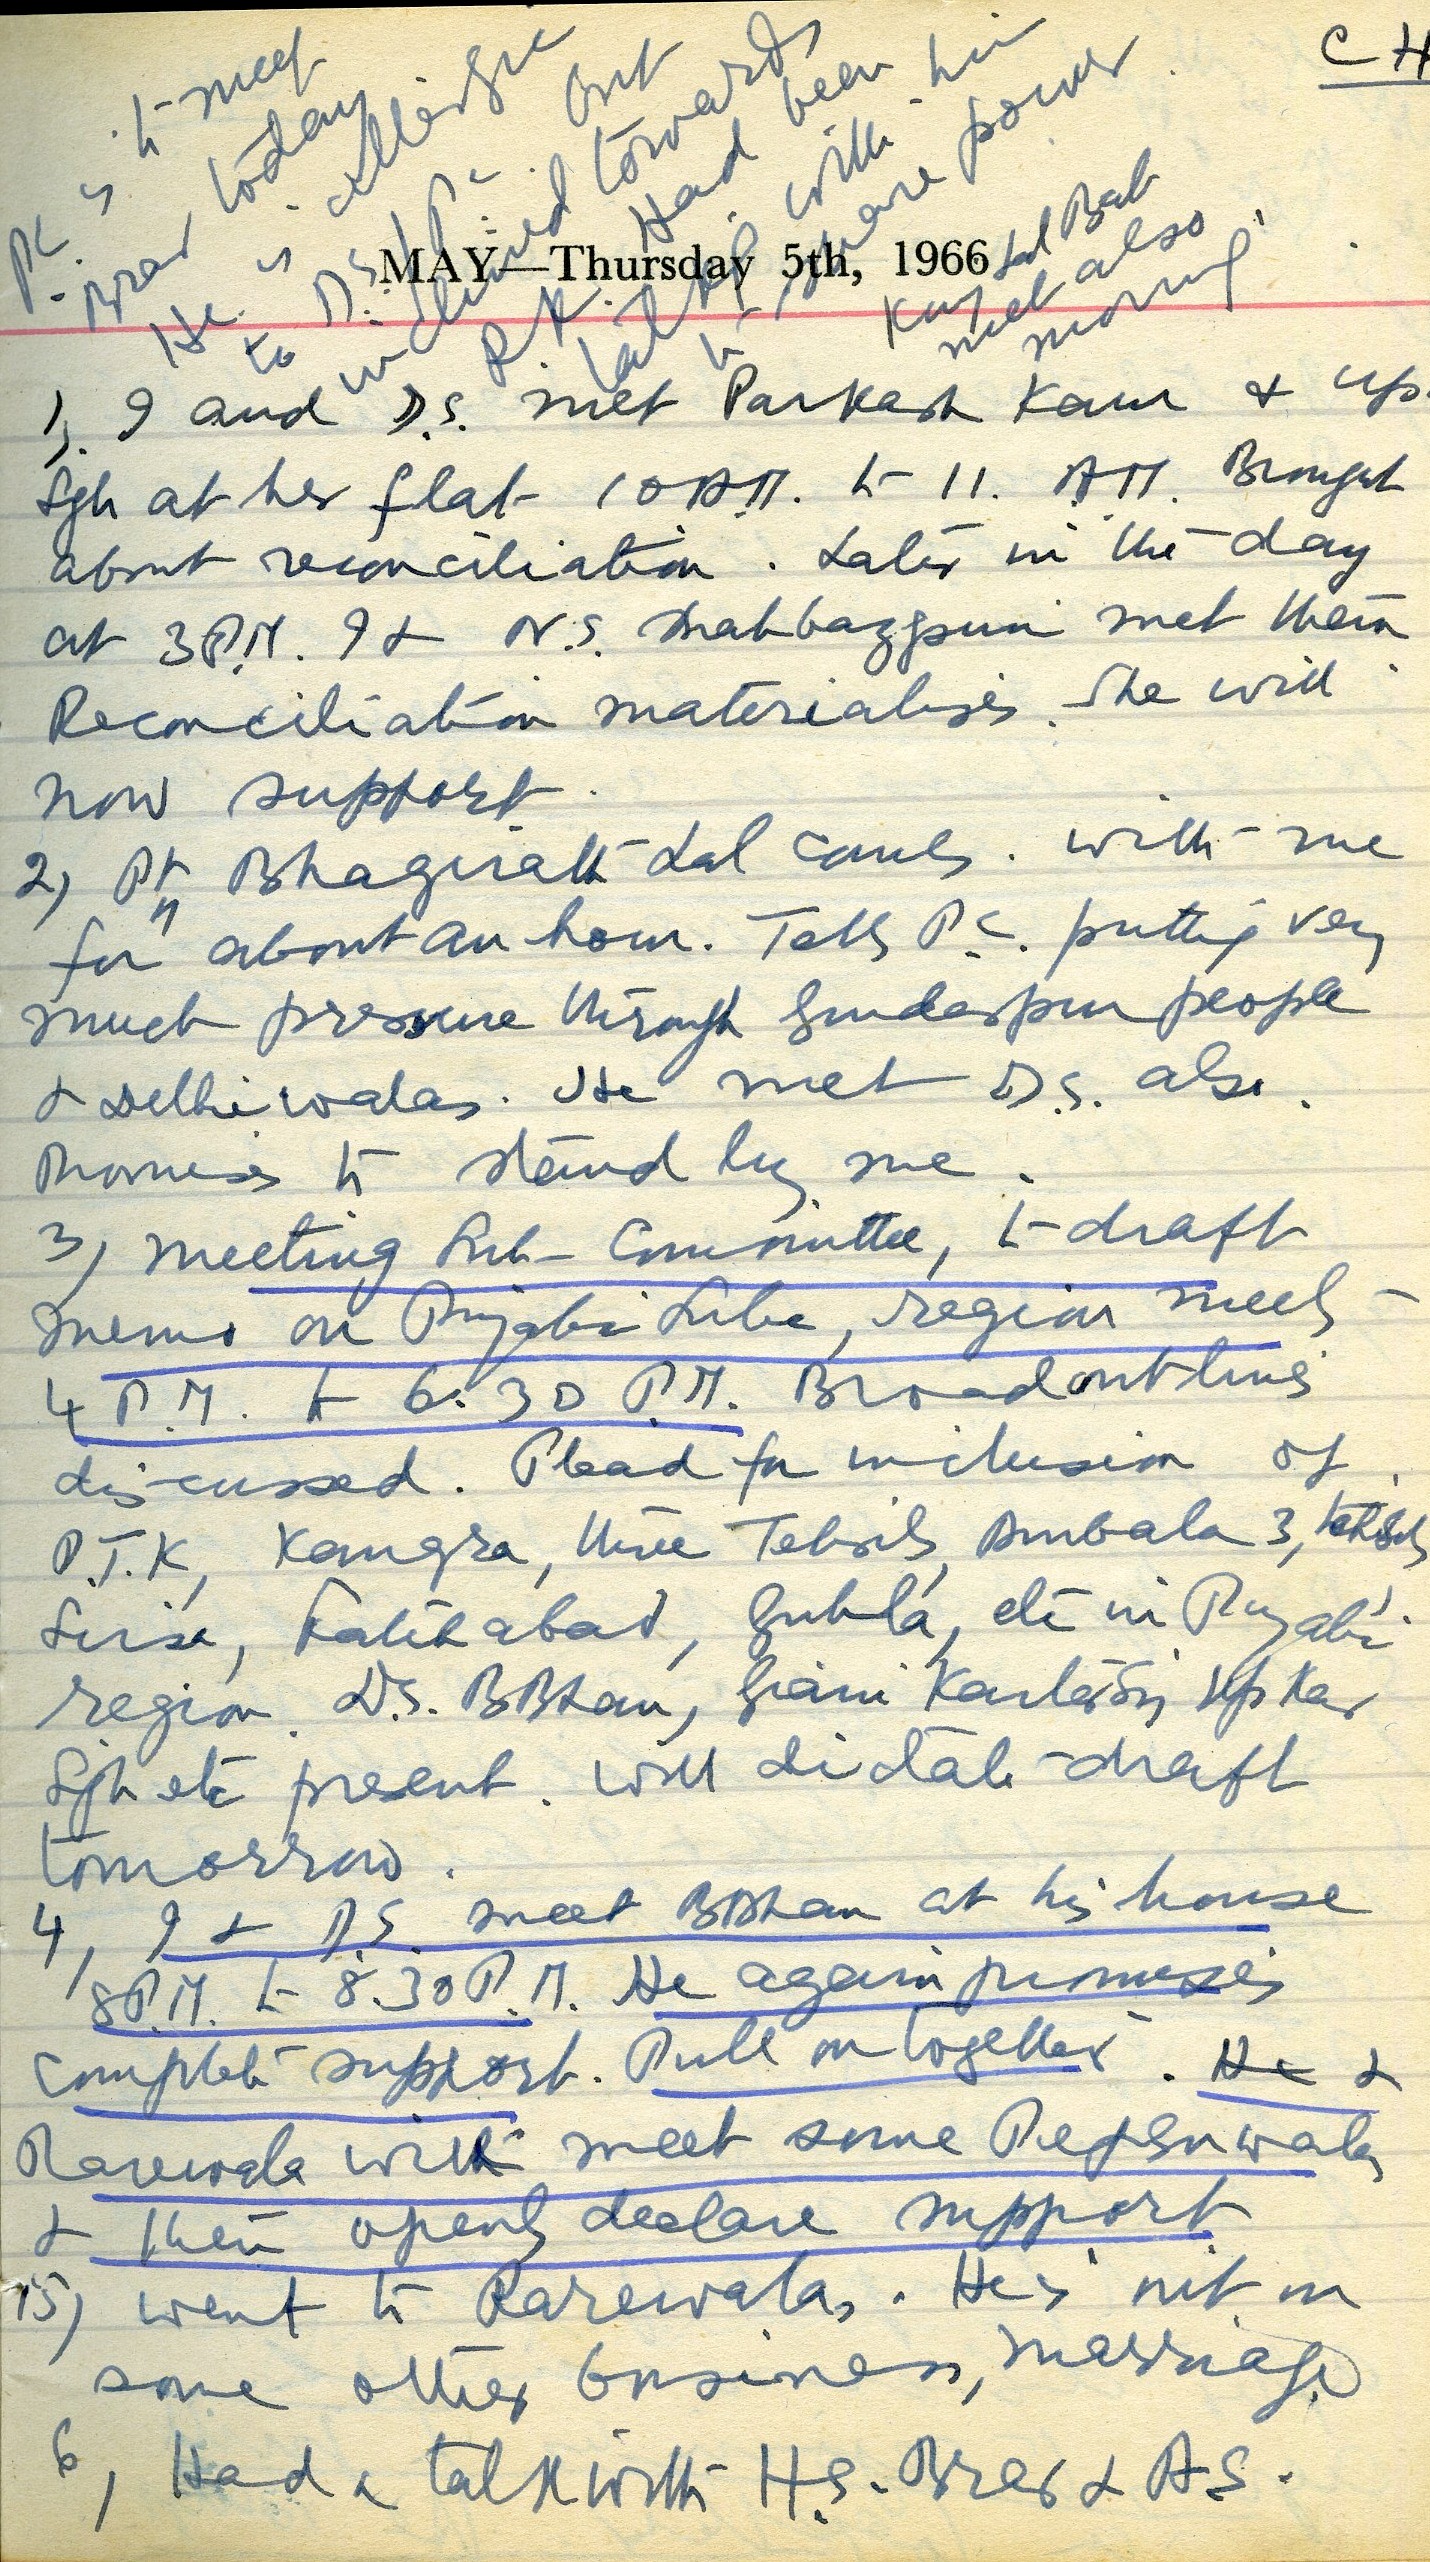 C H
P.C. is to meet
Brar today
He is allergic
to D.S./P.C. but
inclined towards
R.K. Had been
talking with him
in share power
Lal Bat
met also
morning
MAY—Thursday 5th, 1966
1, I and D.S. met Parkash Kaur & Up.
Sgh at her flat 10 A.M. to 11. A.M. Brought
about reconciliation. Later in the day
at 3 P.M. I & N.S. Shahbazpuri met them
Reconciliation materialises. She will
now support.
2, Pt Bhagirath Lal comes. With me
for about an hour. Tells P.C. putting very
much pressure through Gurdaspur people
& Delhiwalas. He met D.S. also.
Promises to stand by me.
3, Meeting Sub-Committee, to draft
memo on Punjabi Suba, region meets
4 P.M. to 6.30 P.M. Broad outlines
discussed. Plead for inclusion of
P.T.K, Kangra, Una Tehsils, Ambala 3, tehsils
Sirsa, Fatehabad, Guhla, etc in Punjabi
region. D.S. BBhan, Giani Kartar Sg, Upkar
Sgh etc present. Will dictate draft
tomorrow.
4, I & D.S. meet BBhan at his house
8 P.M. to 8.30 P.M. He again promises
complete support. Pull on together. He &
Rarewala will meet some Pepsuwalas
& then openly declare support
5, Went to Rarewalas. He is not in
some other business, marriage
6, Had a talk with H.S. Brar & A.S.